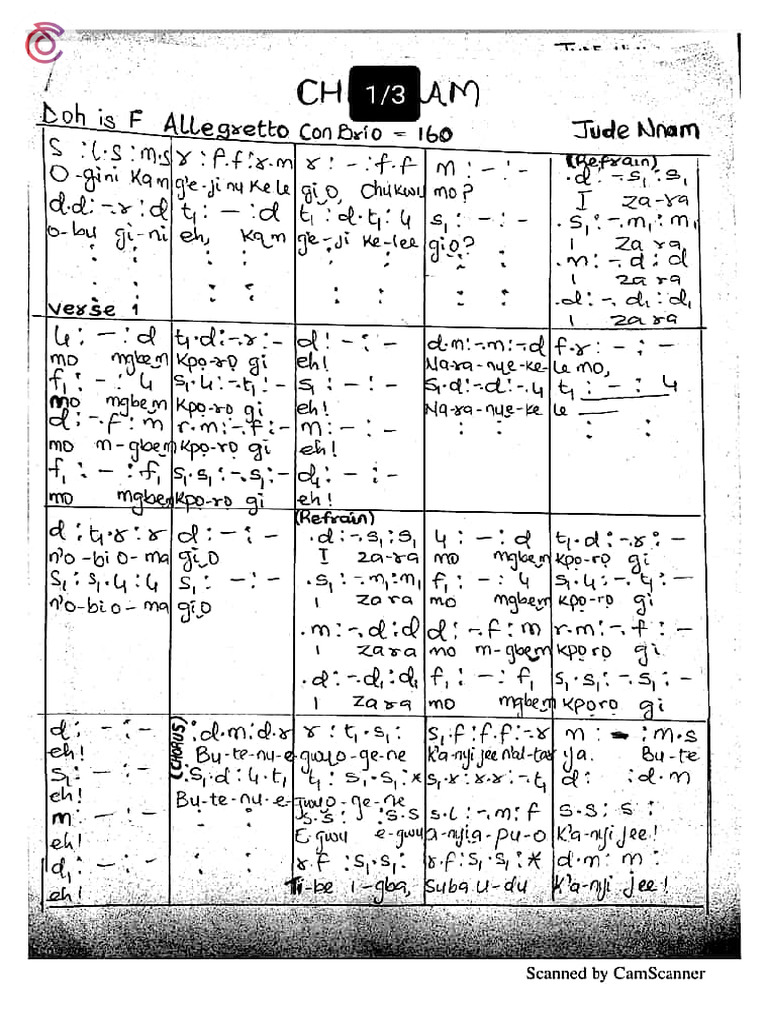 CH
1/3
AM
Doh is F Allegretto Con Brio = 160
Jude Nnam
S :l.S :m.s r :f.f :r.m r : - :f.f m : - : -
(Refrain)
.d : -.s₁ :s₁
O-gini Kam g'e-ji nu ke le gi O, Chukwu mo?
I za-ra
d.d :-.r :d t₁ : - :d t₁ :d.t₁ :l₁ s₁ : - : -
.s₁ : -.m₁ :m₁
o-bu gi-ni eh, kam g'e-ji ke-lee gi O?
I za ra
.m : -.d :d
I za ra
.d : -.d₁ :d₁
I za ra
Verse 1
l₁ : - :d t₁.d :-.r :- d : - : - d.m :-.m :-d f.r : - : -
mo mgbem kpo-ro gi eh! Na-ra-nye-ke-le mo,
f₁ : - :l₁ s₁.l₁ :-.t₁ :- s₁ : - : - s₁.d :-.d :-.l₁ t₁ : - : l₁
mo mgbem kpo-ro gi eh! Na-ra-nye-ke le
d : -.f :m r.m :-.f :- m : - : -
mo m-gbem kpo-ro gi eh!
f₁ : - :f₁ s₁.s₁ :-.s₁ :- d₁ : - : -
mo mgbem kpo-ro gi eh!
(Refrain)
d :t₁.r :r d : - : - .d : -.s₁ :s₁ l₁ : - :d t₁.d :-.r :-
n'o-bi o-ma gi O I za-ra mo mgbem kpo-ro gi
s₁ :s₁.l₁ :l₁ s₁ : - : - .s₁ : -.m₁ :m₁ f₁ : - :l₁ s₁.l₁ :-.t₁ :-
n'o-bi o-ma gi O I zara mo mgbem kpo-ro gi
.m : -.d :d d : -.f :m r.m :-.f :-
I zara mo m-gbem kporo gi
.d : -.d₁ :d₁ f₁ : - :f₁ s₁.s₁ :-.s₁ :-
I zara mo mgbem kporo gi
d : - : - (CHORUS) :d.m :d.r r :t₁.s₁ : s₁.f :f.f :-.r m : - :m.s
eh! Bu-te-nu-e-gwu o-ge-ne K'a-nyi jee Nal-tar ya. Bu-te
s₁ : - : - :s₁.d :l₁.t₁ t₁ :s₁.s₁ :* s₁.r :r.r :-.t₁ d : :d.m
eh! Bu-te-nu-e-gwu o-ge-ne
m : - : - s.s : :s.s s.l :-.m :f s.s :s :
eh! Egwu e-gwu a-nyi a-pu-o K'a-nyi jee!
d₁ : - : - r.f :s₁.s₁ : r.f :s₁.s₁ :* d.m :m :
eh! Ti-be i-gba, suba u-du K'a-nyi jee!
Scanned by CamScanner